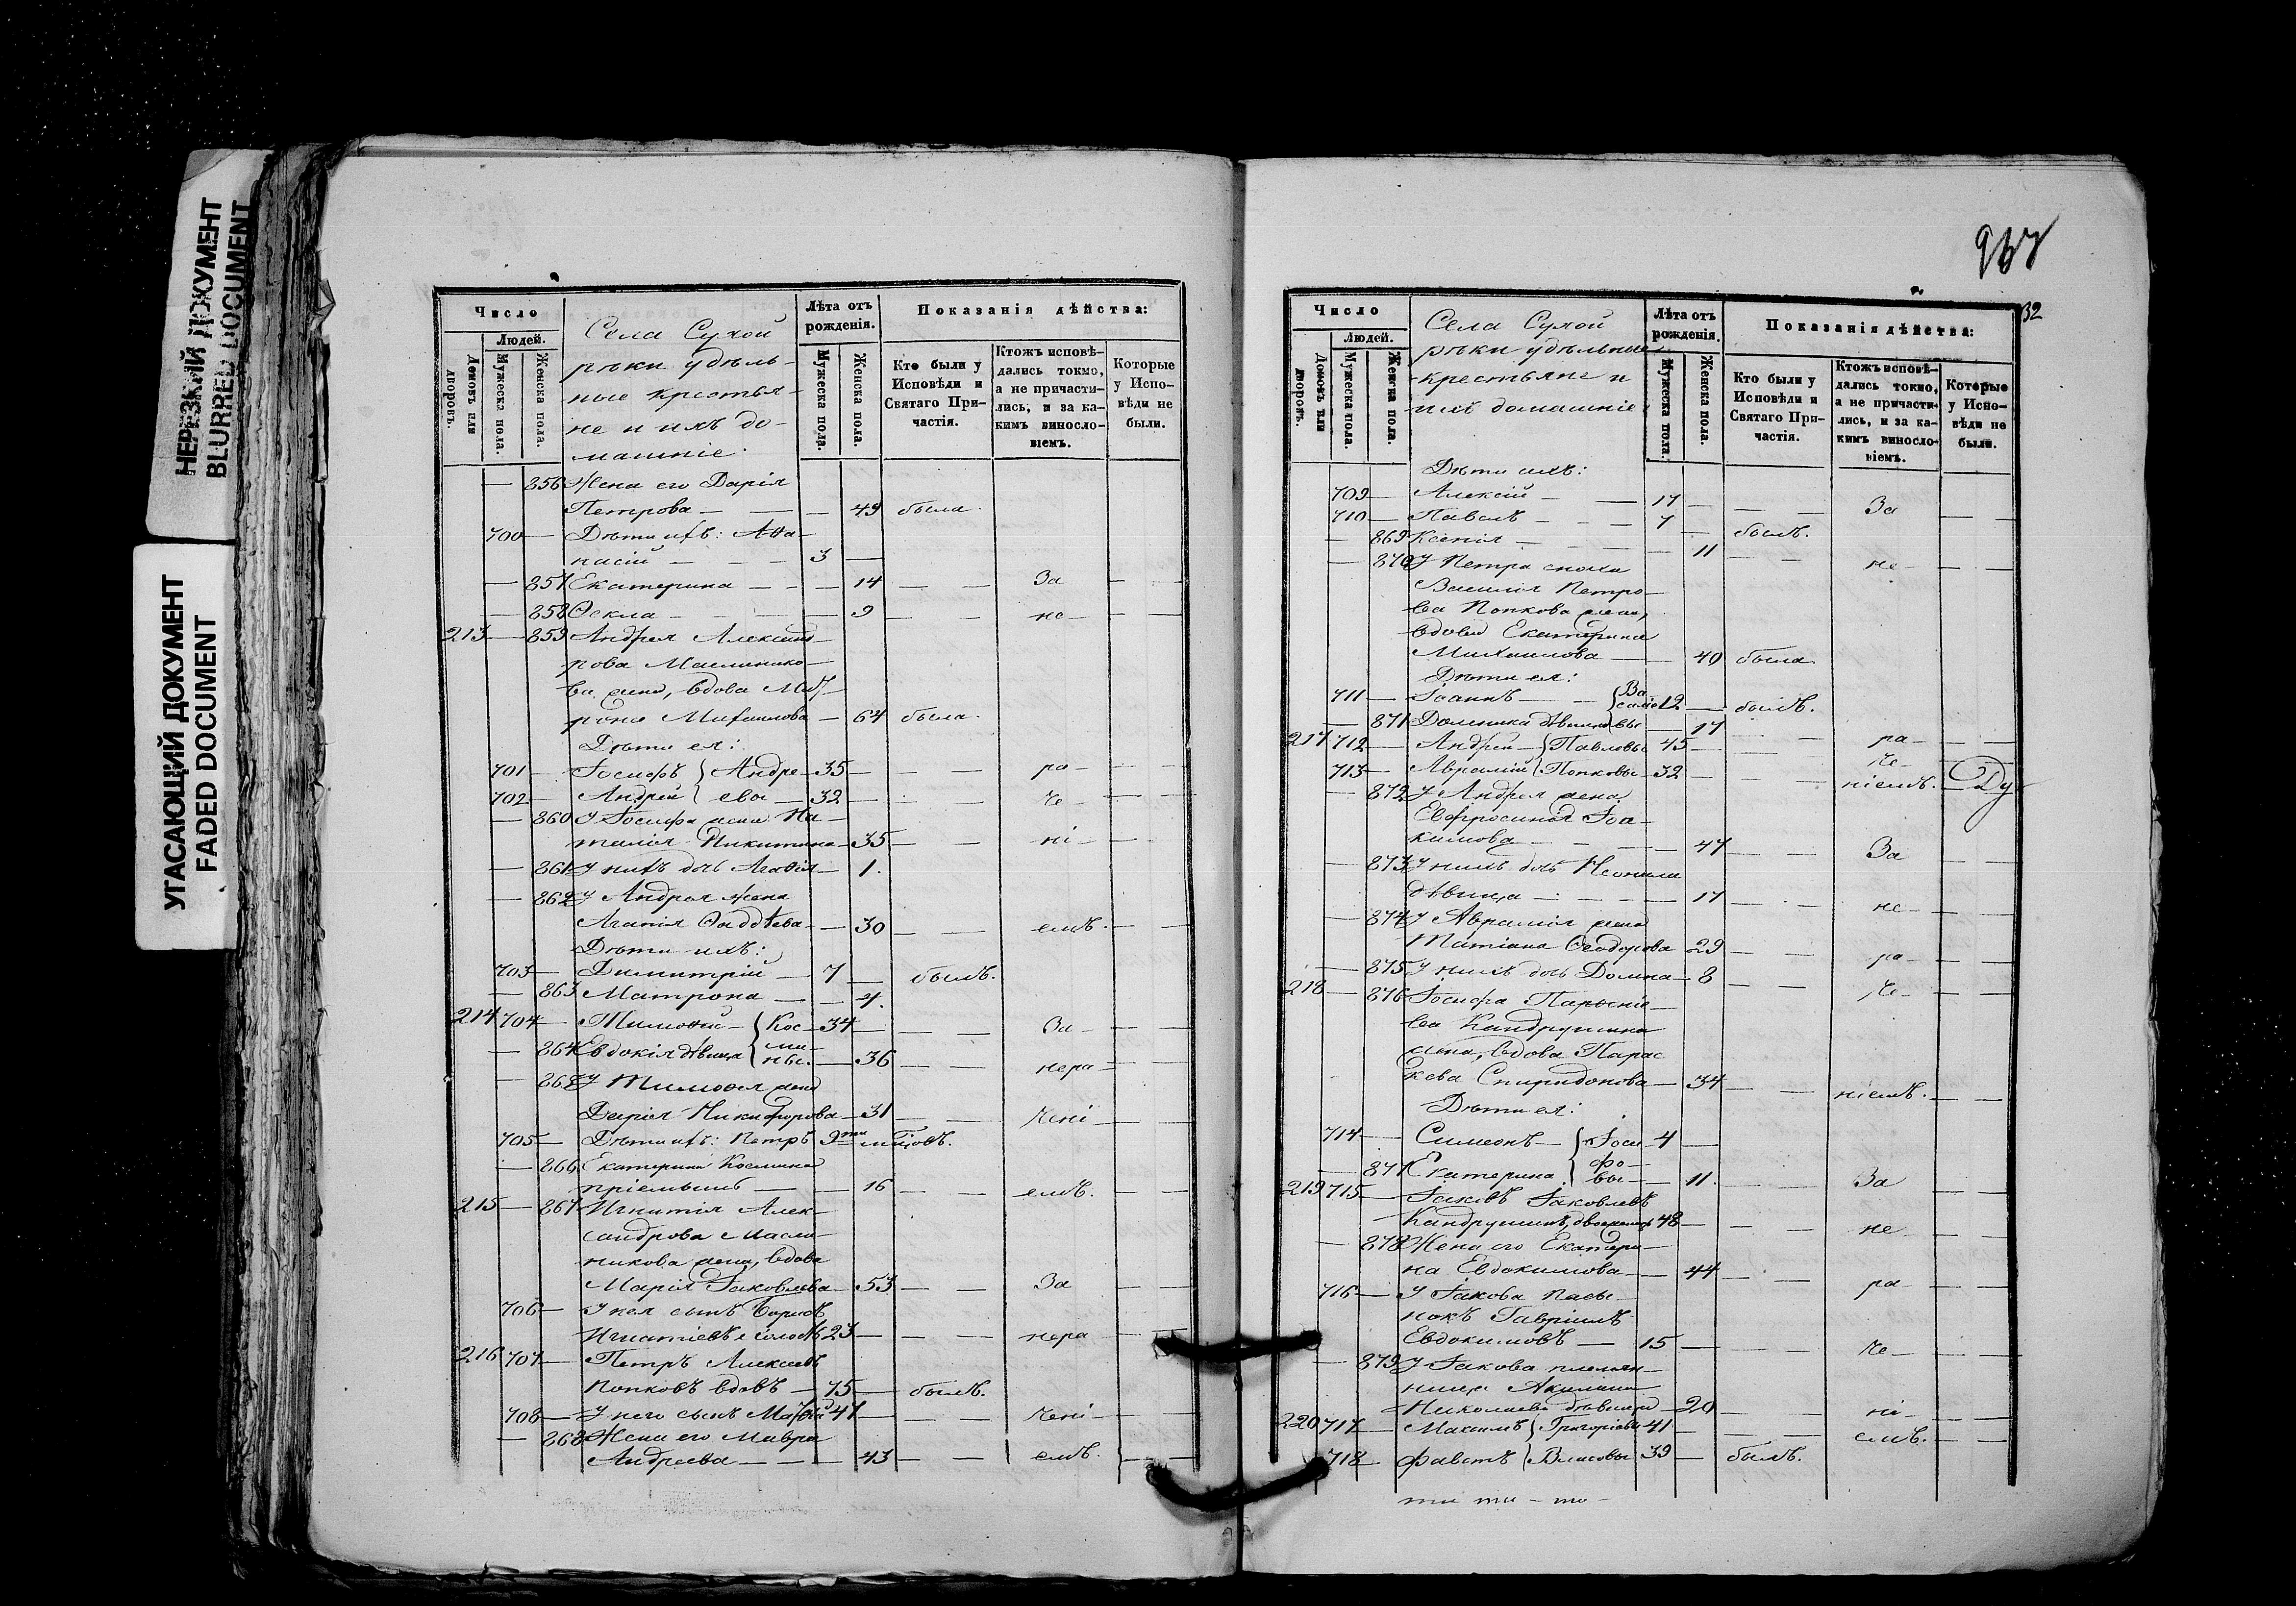 НЕРЕЗКИЙ ДОКУМЕНТ
BLURRED DOCUMENT
УГАСАЮЩИЙ ДОКУМЕНТ
FADED DOCUMENT
Число
Людей.
Домовъ или дворовъ.
Мужеска пола.
Женска пола.
Села Сухой
рѣки удѣль-
ные крестья-
не и ихъ до-
машніе.
Лѣта отъ рожденія.
Мужеска пола.
Женска пола.
Показанія дѣйства:
Кто были у Исповѣди и Святаго При-частія.
Ктожъ исповѣ-дались токмо, а не причасти-лись, и за ка-кимъ винослo-віемъ.
Которые у Испо-вѣди не были.
— 856 Жена его Дарія
Петрова — — — 49 была.
700 — Дѣти ихъ: Аѳа-
насій — — — 3 —
— 857 Екатерина — — — 14 — — За — —
— 858 Ѳекла — — 9 — — не — — —
213 — 859 Андрея Александ-
рова Маслинико-
ва жена, вдова Мат-
рона Михаилова — 64 была.
Дѣти ея:
701 — Іосифъ } Андре — 35 — — — ра — — —
702 — Андрей } евы — 32 — — — че — — —
— 860 У Іосифа жена На-
талія Никитина — 35 — — ні — — —
— 861 У нихъ дочь Агаѳія — 1.
— 862 У Андрея жена
Агапія Ѳаддѣева — 30 — — емъ. — —
Дѣти ихъ:
703 — Димитрій — 7 — былъ.
— 863 Матрона — — 4.
214 704 — Тимоѳей — { Кос — 34 — — — За — — —
— 864 Евдокія дѣвица { ми-
ны. — 36 — — нера — — —
— 865 У Тимоѳея жена
Дарія Никифорова — 31 — — чені — — —
705 — Дѣти ихъ: Петръ 9ти мѣсяцовъ.
— 866 Екатерина Космина
пріемышъ — — 16 — — емъ. — —
215 — 867 Игнатія Алек-
сандрова Масли-
никова жена, вдова
Марія Іаковлева — 53 — — За — —
706 — У нея сынъ Борисъ
Игнатіевъ холостъ 23 — — — нера — —
216 707 — Петръ Алексѣевъ
Попковъ вдовъ — 75 — былъ.
708 — У него сынъ Матѳій 47 — — — чені — — —
— 868 Жена его Мавра
Андреева — — — 43 — — емъ. — —
967
32
Число
Людей.
Домовъ или дворовъ.
Мужеска пола.
Женска пола.
Села Сухой
рѣки удѣльные
крестьяне и
ихъ домашніе.
Лѣта отъ рожденія.
Мужеска пола.
Женска пола.
Показанія дѣйства:
Кто были у Исповѣди и Святаго При-частія.
Ктожъ исповѣ-дались токмо, а не причасти-лись, и за ка-кимъ винослo-віемъ.
Которые у Испо-вѣди не были.
Дѣти ихъ:
709 — Алексій — — 17 — — — За — —
710 — Павелъ — — — 7 — былъ.
— 869 Ксенія — — — — 11 — — не — — —
— 870 У Петра сноха
Василія Петро-
ва Попкова жена,
вдова Екатерина
Михаилова — — 40 была.
Дѣти ея:
711 — Іоаннъ — — { Ва-
силіе 12 — былъ.
— 871 Домника дѣвица { вы — 17 — — ра — — —
217 712 — Андрей — { Павловы 45 — — — че — — —
713 — Аврамій { Попковы — 32 — — — ніемъ. — —
— 872 У Андрея жена
Евфросинія Іоа-
кимова — — — — 47 — — За — —
— 873 У нихъ дочь Неонила
дѣвица — — — — 17 — — не — — —
— 874 У Аврамія жена
Татіана Ѳеодорова 29 — — ра — — —
— 875 У нихъ дочь Домна — 8 — — че — — —
218 — 876 Іосифа Парѳеніе-
ва Кандрушина
жена, вдова Парас
кева Спиридонова — 34 — — ніемъ. — —
Дѣти ея:
714 — Симеонъ — { Іоси 4 —
— 877 Екатерина { фо-
вы — — 11. — — За — —
219 715 — Іаковъ Іаковлевъ
Кандрушинъ, двоеженецъ 48 — — — не — —
— 878 Жена его Екатери-
на Евдокимова — — 44 — — ра — — —
716 — У Іакова пасы-
нокъ Гавріилъ
Евдокимовъ — 15 — — — че — — —
— 879 У Іакова племян-
ница Акилина
Николаева дѣвица — 20 — — ні — — —
220 717 — Максимъ } Григоріевы 41 — — — емъ. — —
718 — Фавстъ { Власовы 39 — былъ.